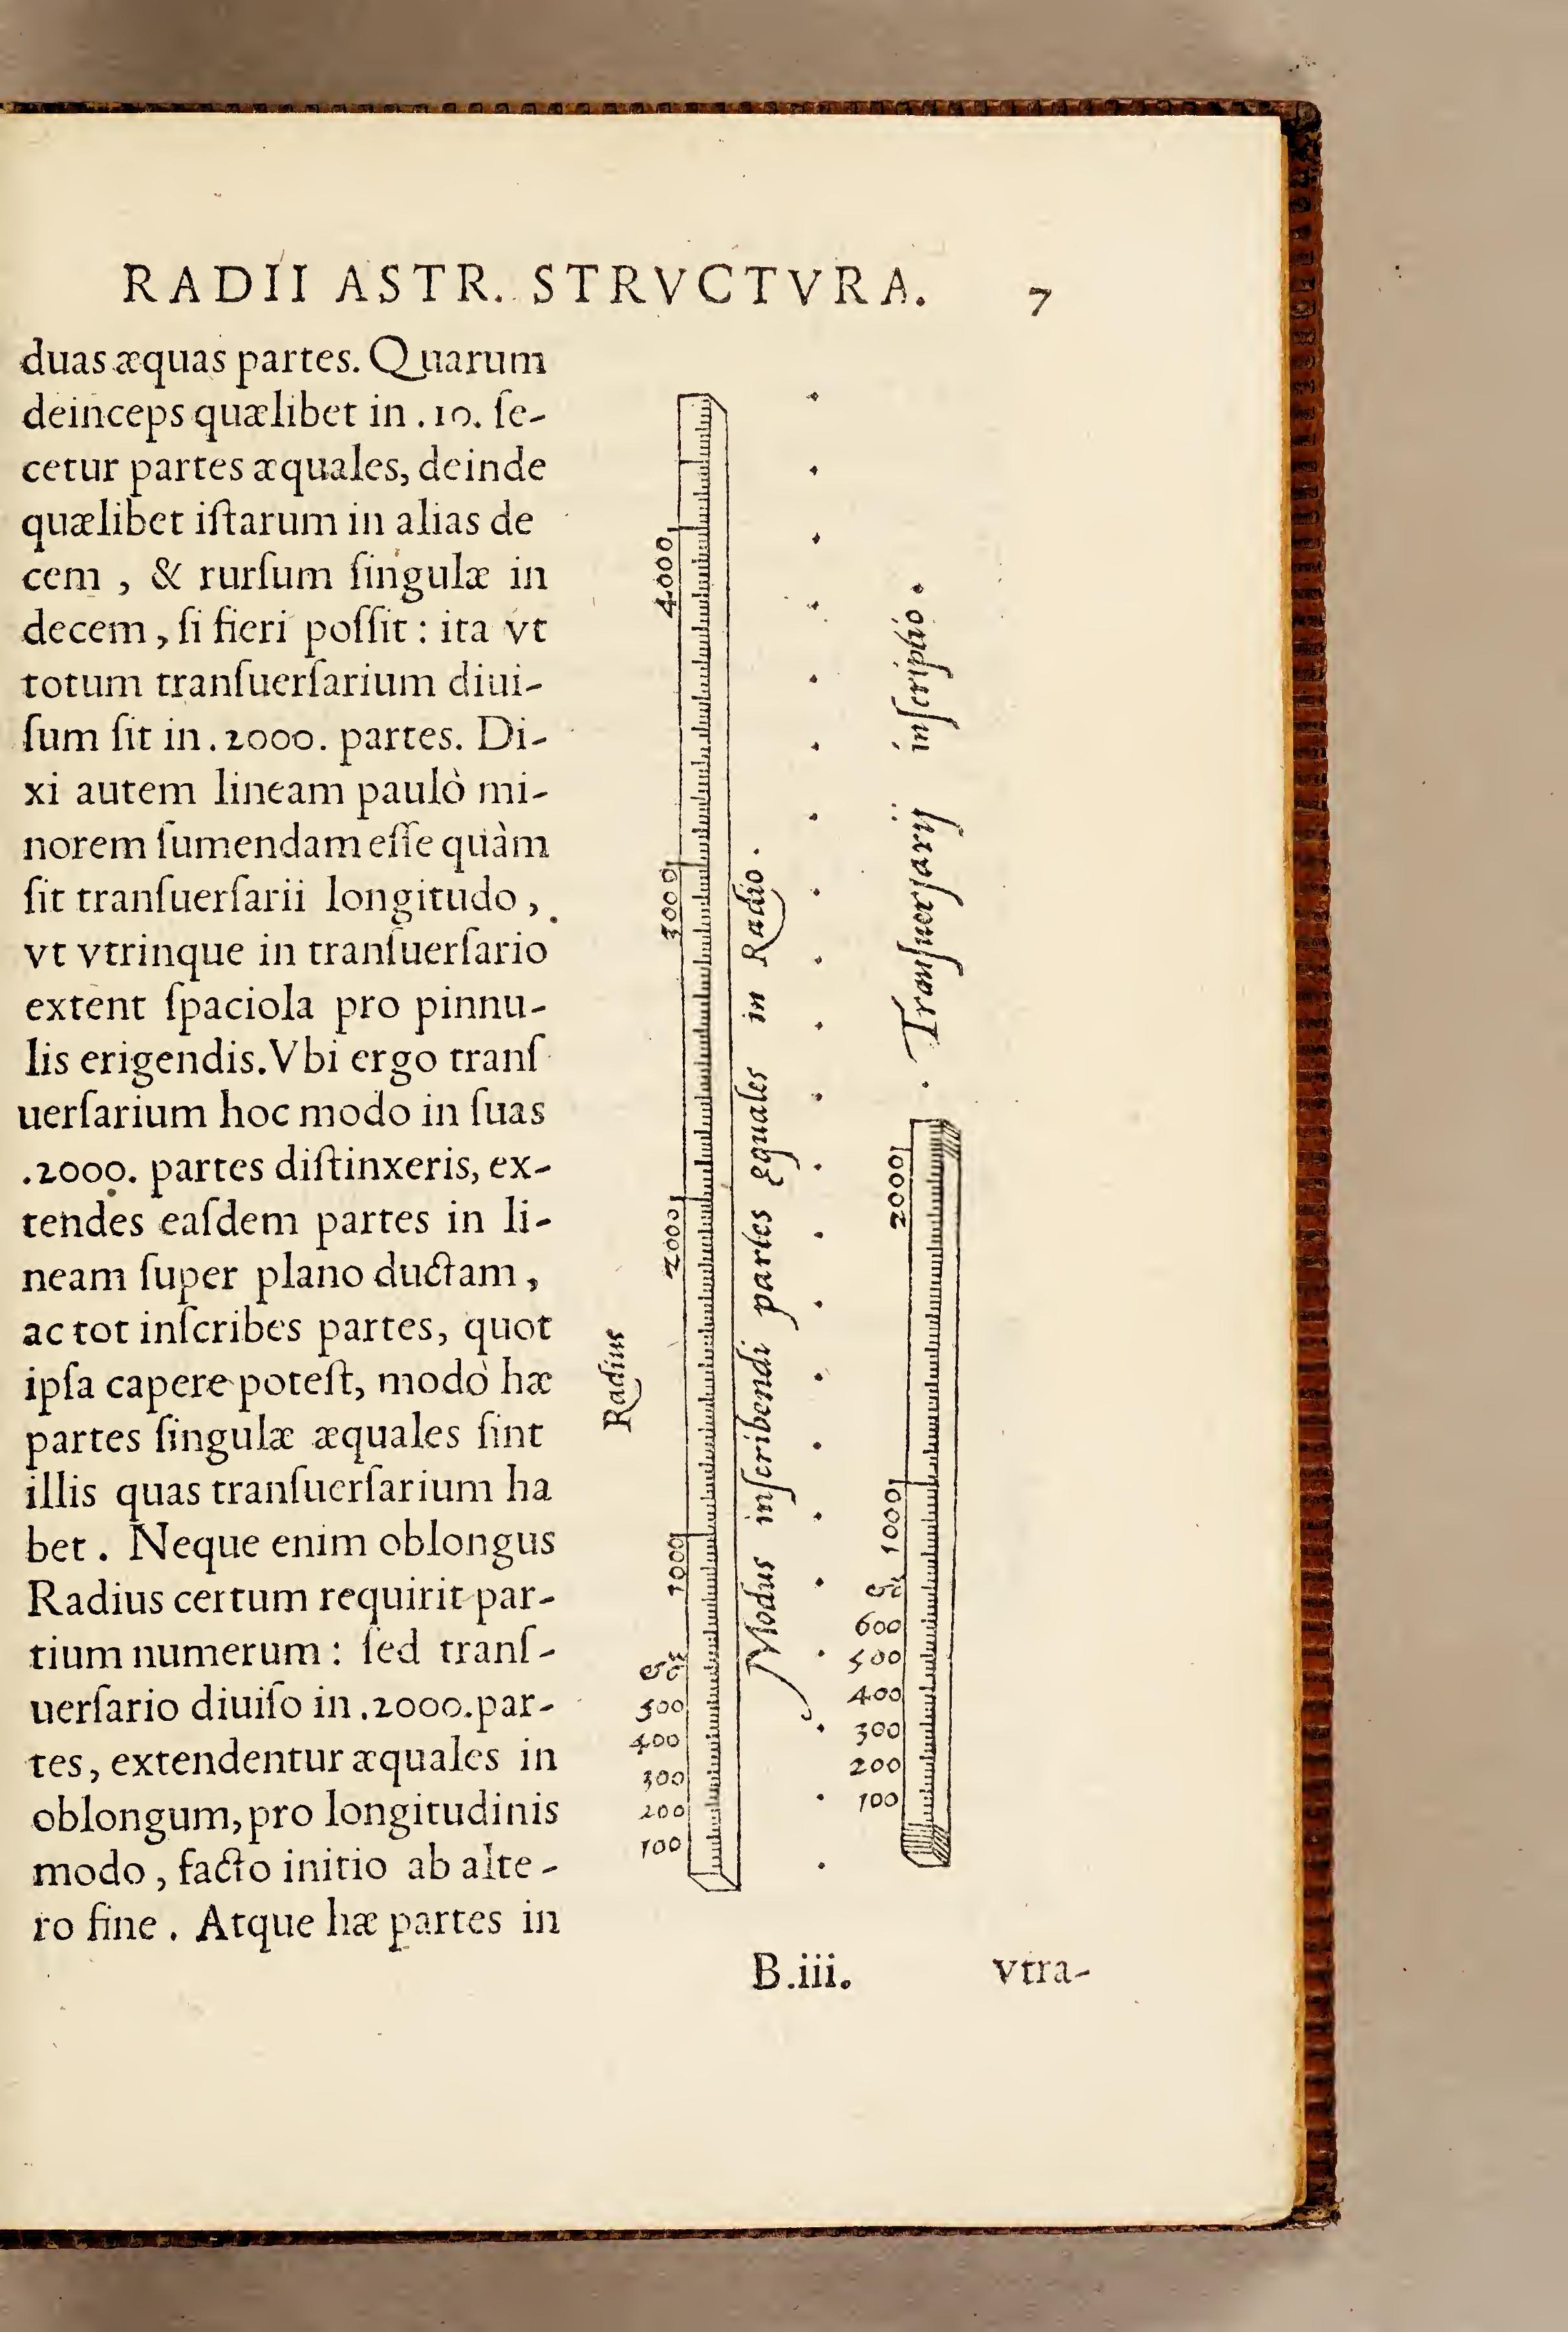 RADII ASTR. STRVCTVRA. 7
duas æquas partes. Quarum
deinceps quælibet in .10. ſe-
cetur partes æquales, deinde
quælibet iſtarum in alias de
cem , & rurſum ſingulæ in
decem , ſi fieri poſſit : ita vt
totum tranſuerſarium diui-
ſum ſit in .2000. partes. Di-
xi autem lineam paulò mi-
norem ſumendam eſſe quàm
ſit tranſuerſarii longitudo ,
vt vtrinque in tranſuerſario
extent ſpaciola pro pinnu-
lis erigendis. Vbi ergo tranſ
uerſarium hoc modo in ſuas
.2000. partes diſtinxeris, ex-
tendes eaſdem partes in li-
neam ſuper plano ductam ,
ac tot inſcribes partes, quot
ipſa capere poteſt, modò hæ
partes ſingulæ æquales ſint
illis quas tranſuerſarium ha
bet . Neque enim oblongus
Radius certum requirit par-
tium numerum : ſed tranſ-
uerſario diuiſo in .2000. par-
tes, extendentur æquales in
oblongum, pro longitudinis
modo , facto initio ab alte-
ro fine . Atque hæ partes in
Radius
4000
3000
2000
1000
&c
500
400
300
200
100
Modus inſcribendi partes ęquales in Radio .
Tranſuerſarij inſcriptio .
2000
1000
&c
600
500
400
300
200
100
B.iii. vtra-